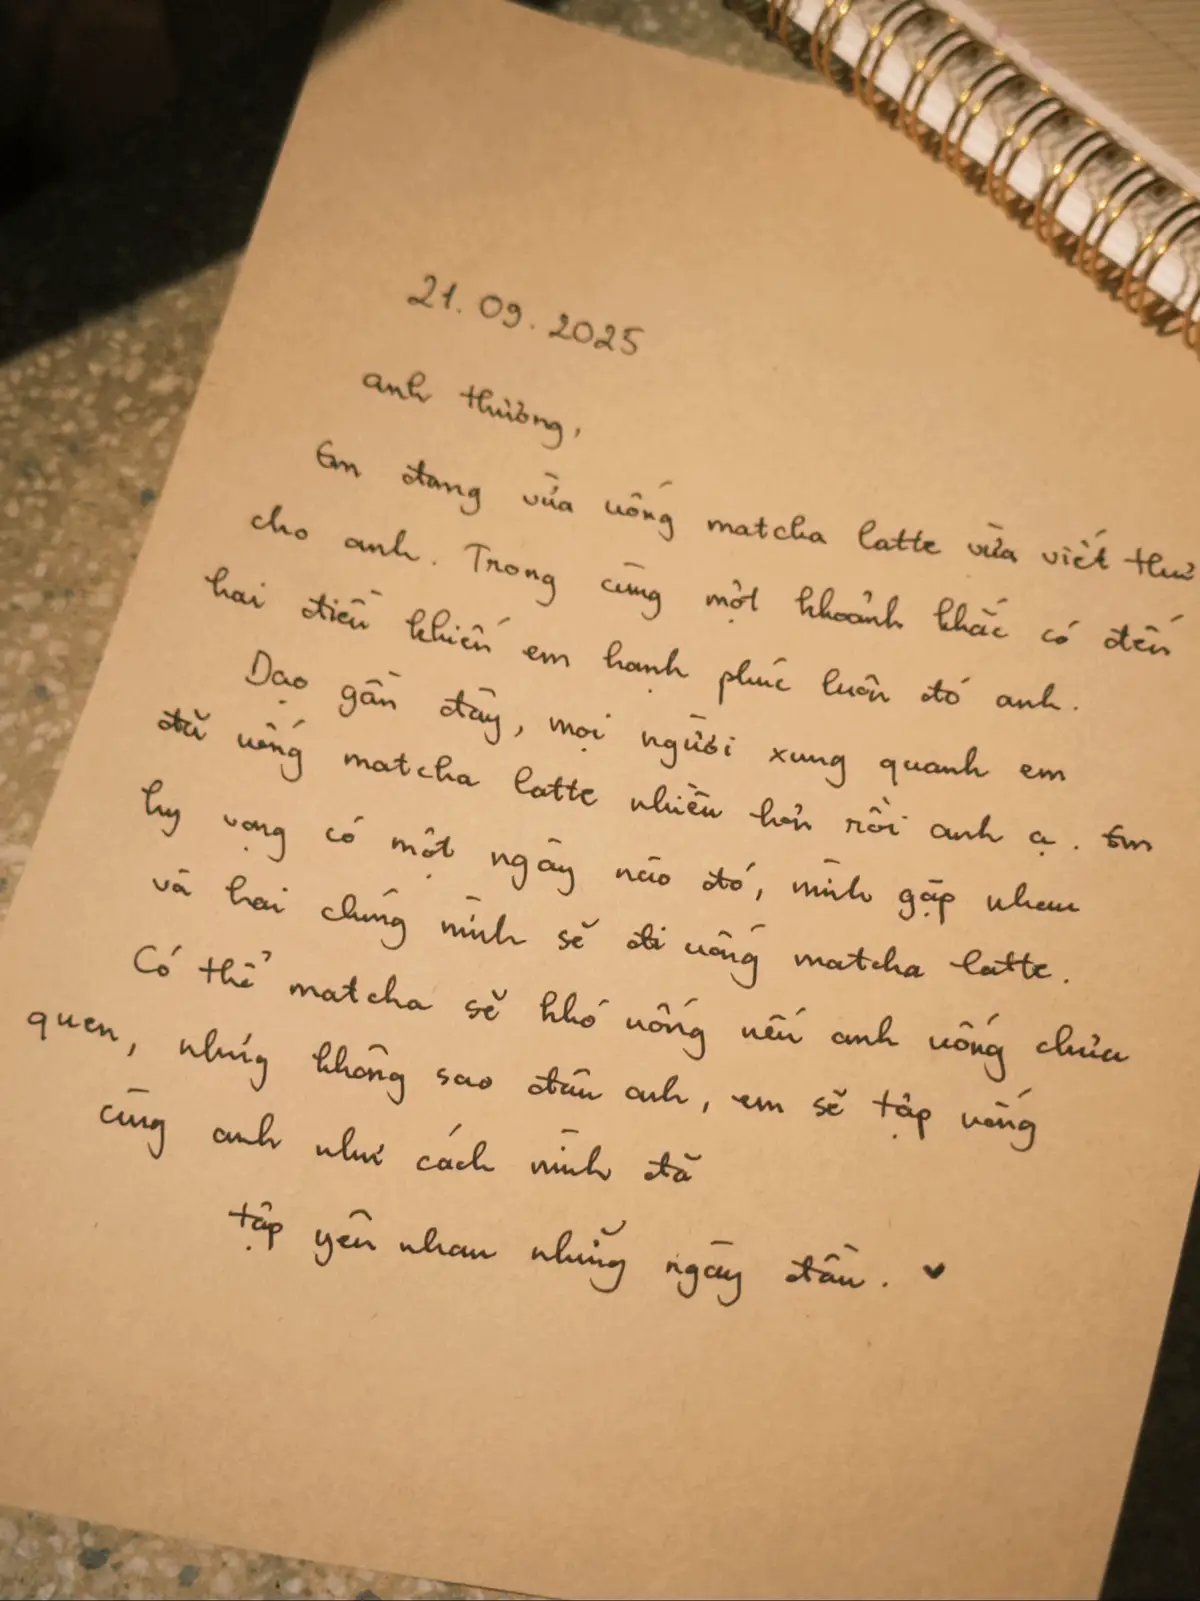 21.09.2025
anh thương,
Em đang vừa uống matcha latte vừa viết thư
cho anh. Trong cùng một khoảnh khắc có đến
hai điều khiến em hạnh phúc luôn đó anh.
Dạo gần đây, mọi người xung quanh em
đã uống matcha latte nhiều hơn rồi anh ạ. Em
hy vọng có một ngày nào đó, mình gặp nhau
và hai chúng mình sẽ đi uống matcha latte.
Có thể matcha sẽ khó uống nếu anh uống chưa
quen, nhưng không sao đâu anh, em sẽ tập uống
cùng anh như cách mình đã
tập yêu nhau những ngày đầu.